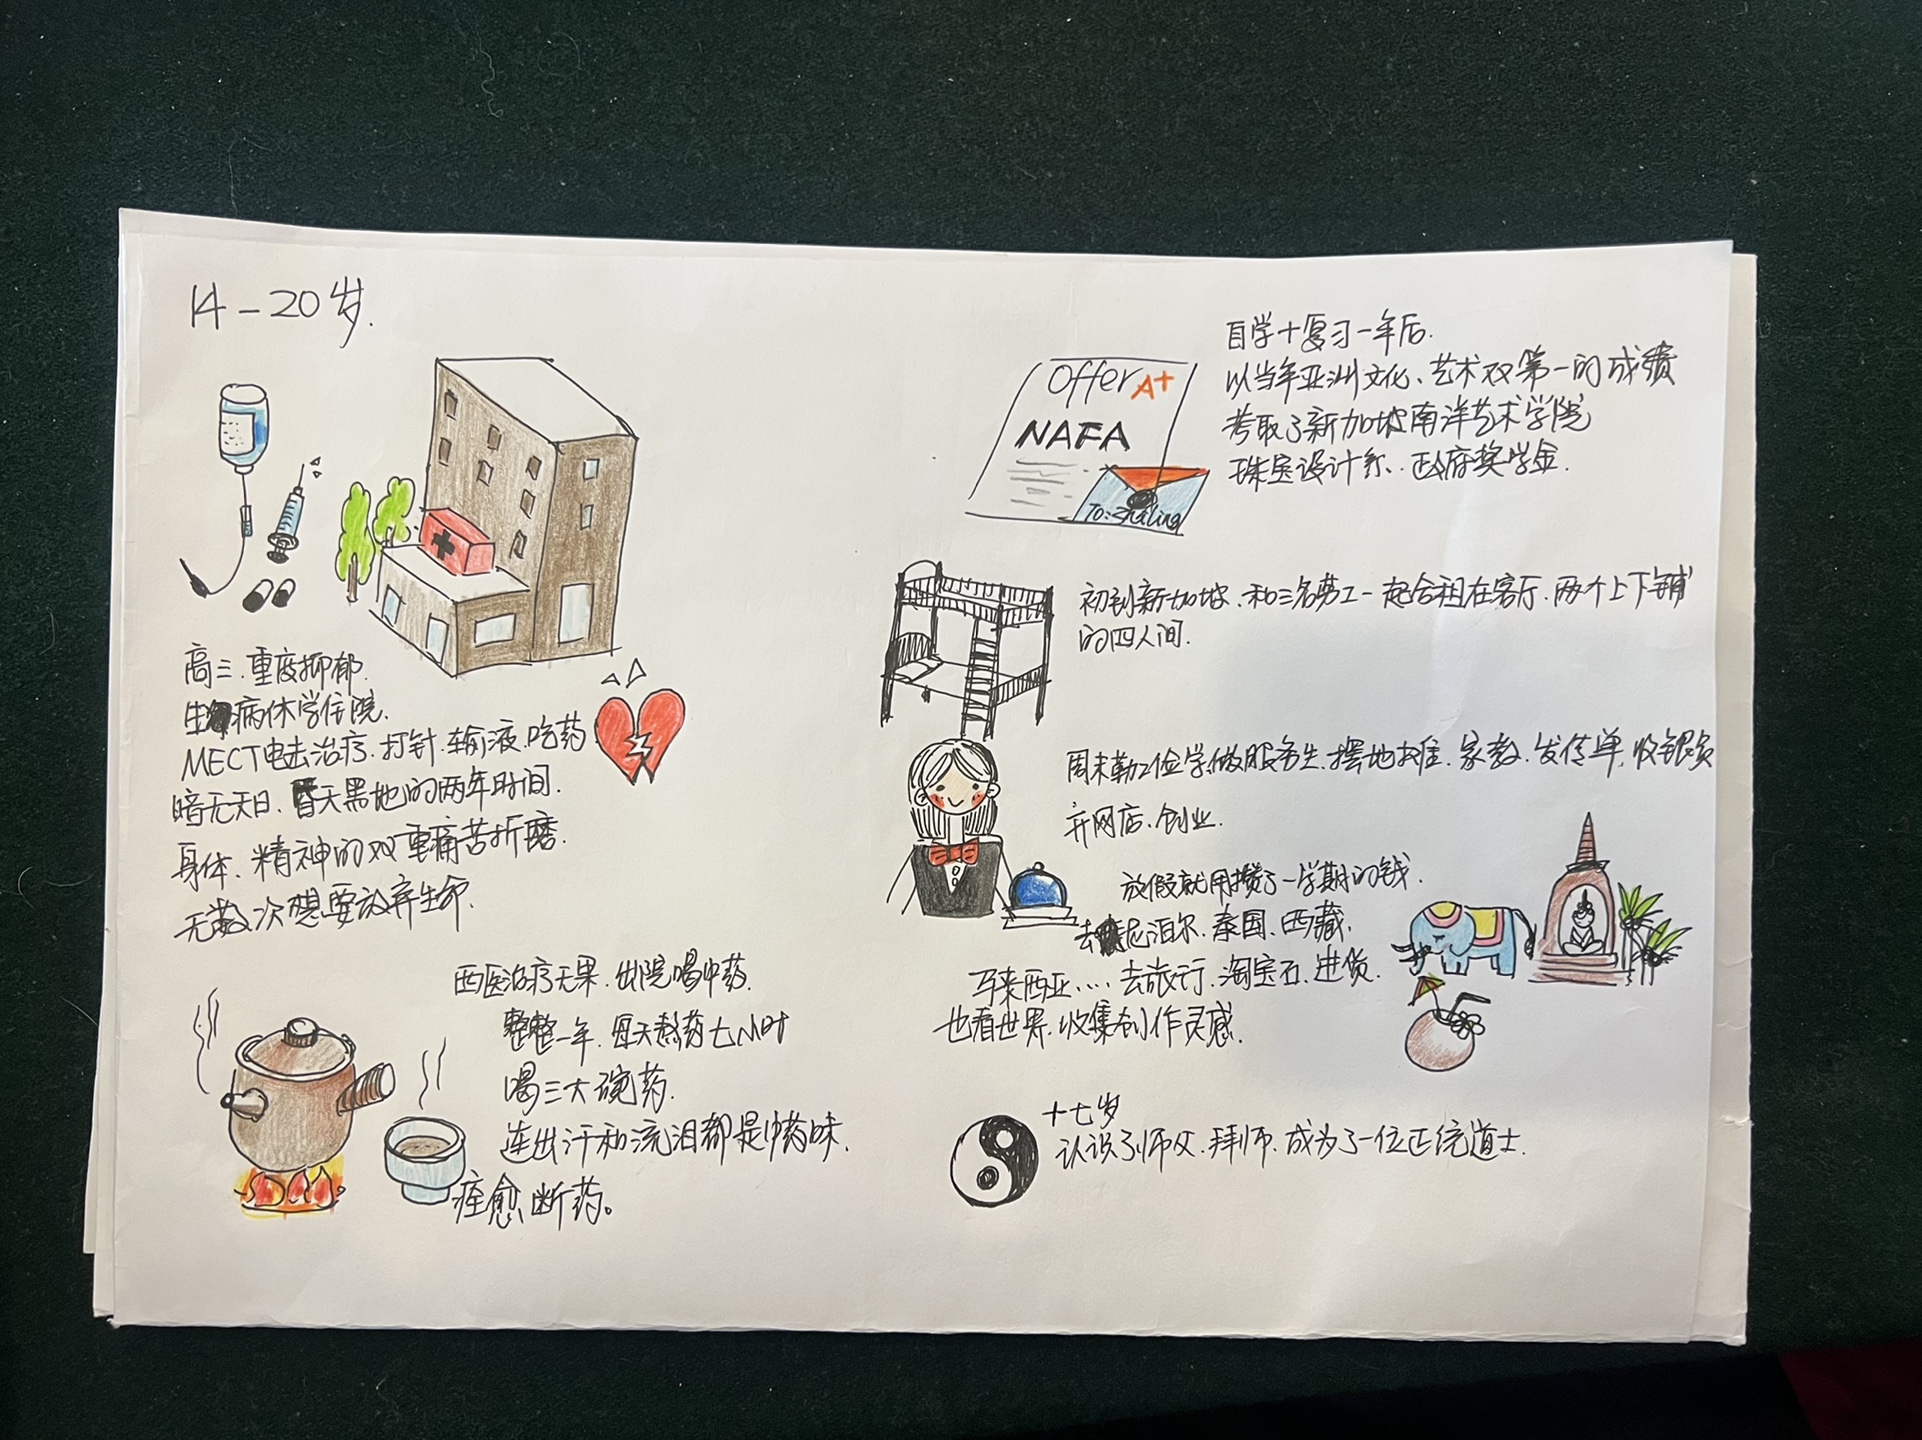 14-20岁.
高三.重度抑郁.
生病休学住院.
MECT电击治疗.打针.输液.吃药
暗无天日.昏天黑地的两年时间.
身体、精神的双重痛苦折磨.
无数次想要放弃生命.
西医治疗无果.出院喝中药.
整整一年.每天熬药七小时
喝三大碗药.
连出汗和流泪都是中药味.
痊愈断药。
Offer A+
NAFA
To:Zhiling
自学+复习一年后.
以当年亚洲文化、艺术双第一的成绩
考取了新加坡南洋艺术学院
珠宝设计系、政府奖学金.
初到新加坡、和三名劳工一起合租在客厅.两个上下铺
的四人间.
周末勤工俭学.做服务生.摆地摊.家教.发传单.收银员
开网店、创业.
放假就用攒了一学期的钱.
去尼泊尔、泰国、西藏.
马来西亚....去旅行.淘宝石.进货.
也看世界.收集创作灵感.
十七岁
认识了师父.拜师.成为了一位正统道士.